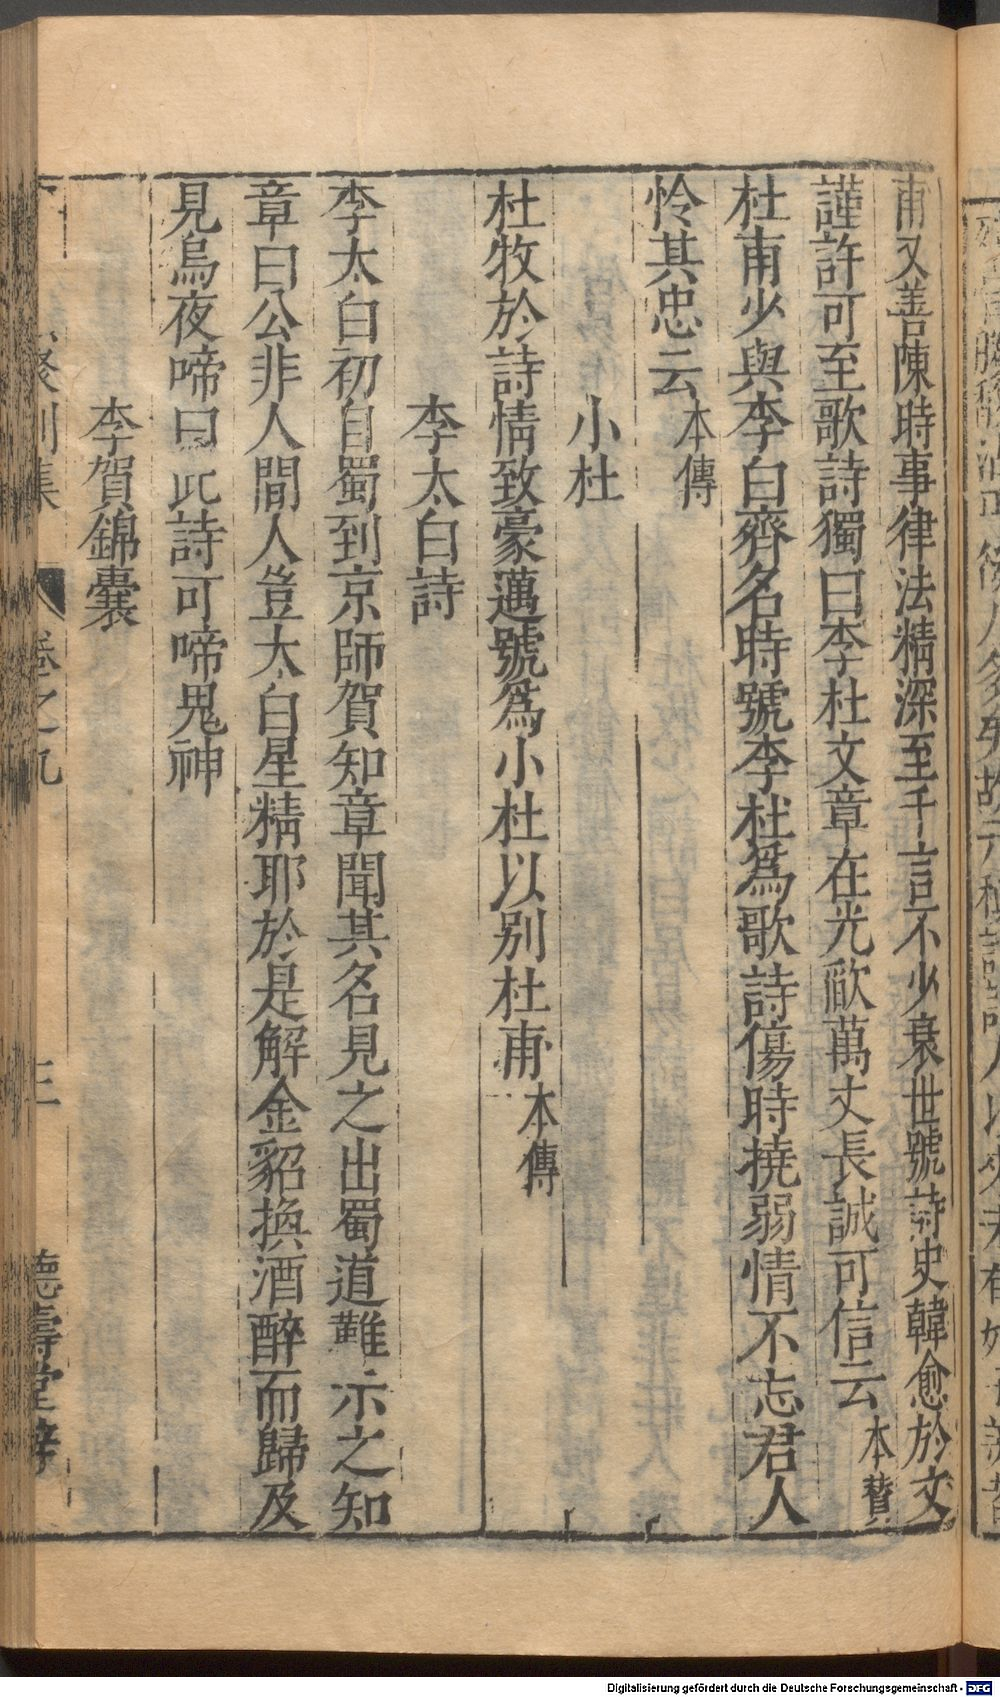 甫又善陳時事律法精深至千言不少衰世號詩史韓愈於文
謹許可至歌詩獨曰李杜文章在光燄萬丈長誠可信云本贊
杜甫少與李白齊名時號李杜爲歌詩傷時撓弱情不忘君人
怜其忠云本傳
小杜
杜牧於詩情致豪邁號爲小杜以别杜甫本傳
李太白詩
李太白初自蜀到京師賀知章聞其名見之出蜀道難示之知
章曰公非人間人豈太白星精耶於是解金貂換酒醉而歸及
見烏夜啼曰此詩可啼鬼神
李賀錦囊
聚別集 卷之九 三 德壽堂梓
Digitalisierung gefördert durch die Deutsche Forschungsgemeinschaft - DFG